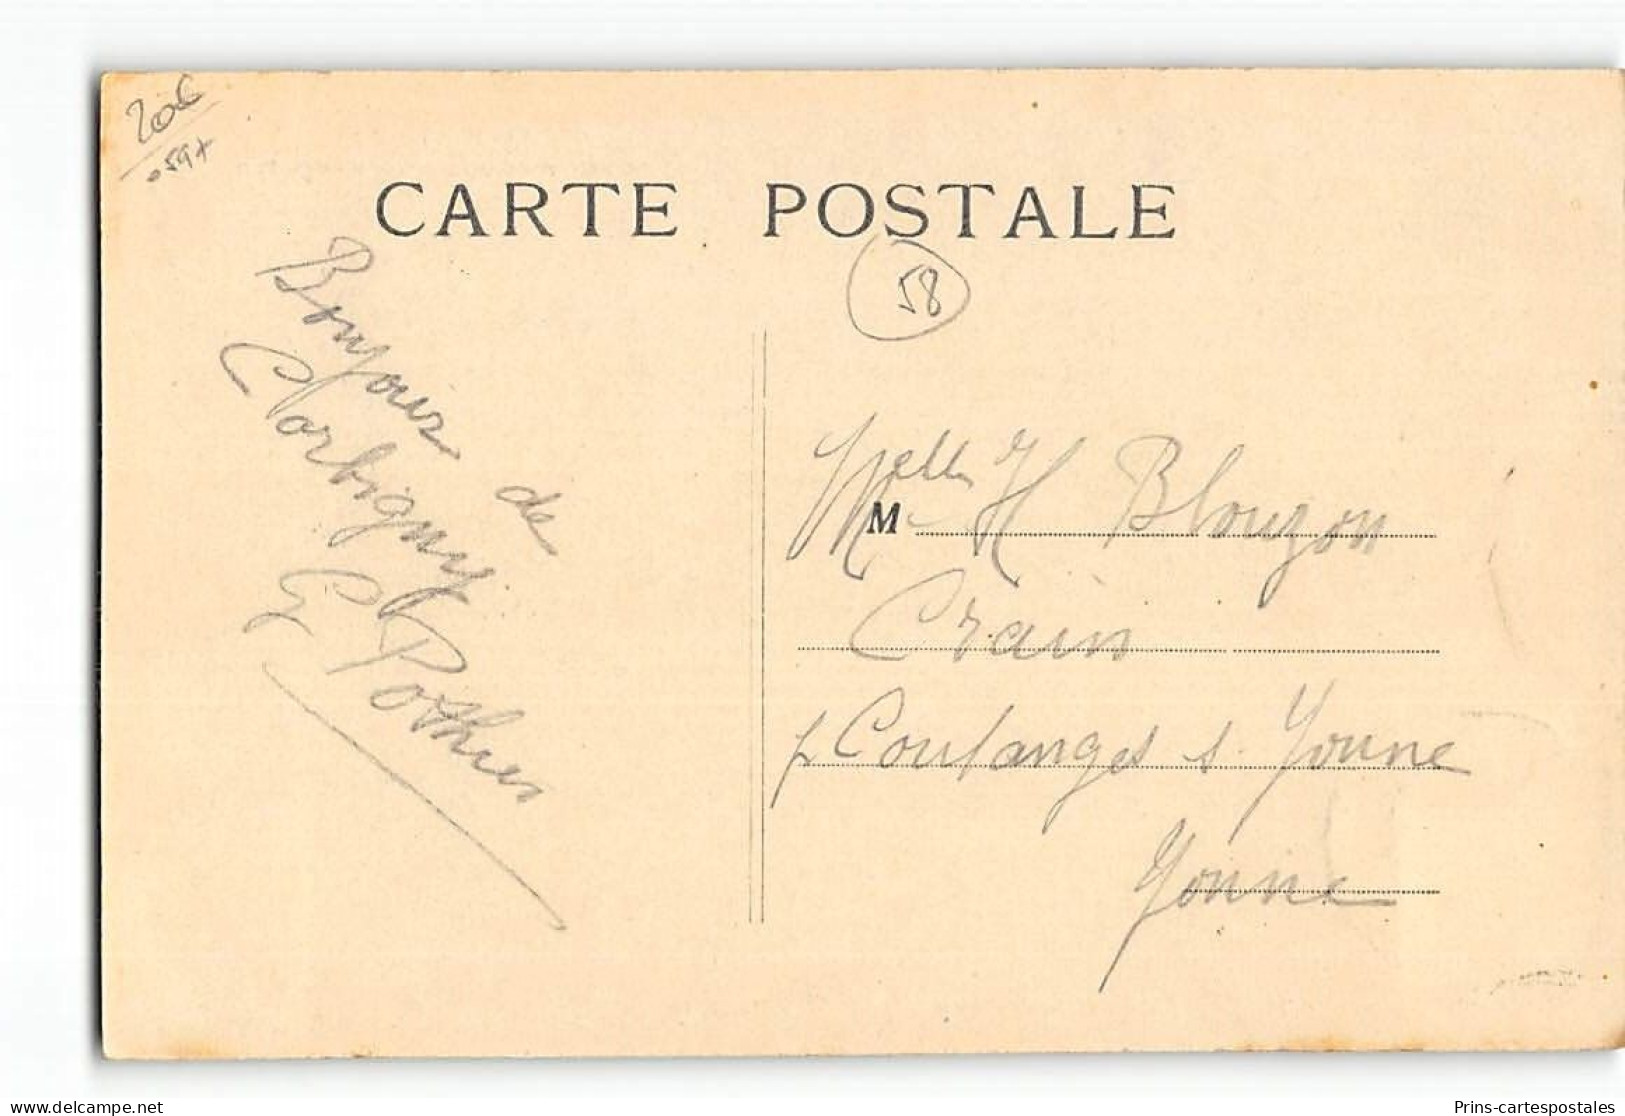 20€
059+
CARTE POSTALE
58
Bonjours de
Corbigny
G Pothier
M
Melle H Blouzon
Crain
p Coulanges s. Yonne
Yonne
Prins-cartespostales